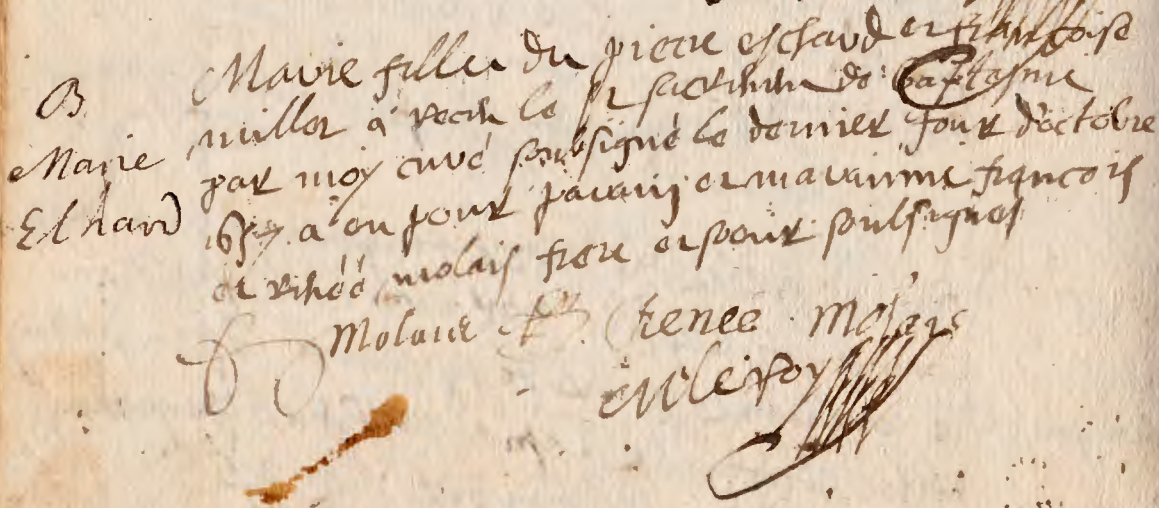 B
Marie
Eschard
Marie fille de pierre eschard et francoise
millot a receu le st sacrement de baptesme
par moy curé soubsigné le dernier jour d'octobre
a eu pour parain et maraine francois
et renéé molais frere et soeur soubsignés
Molais renee molais
M leroy